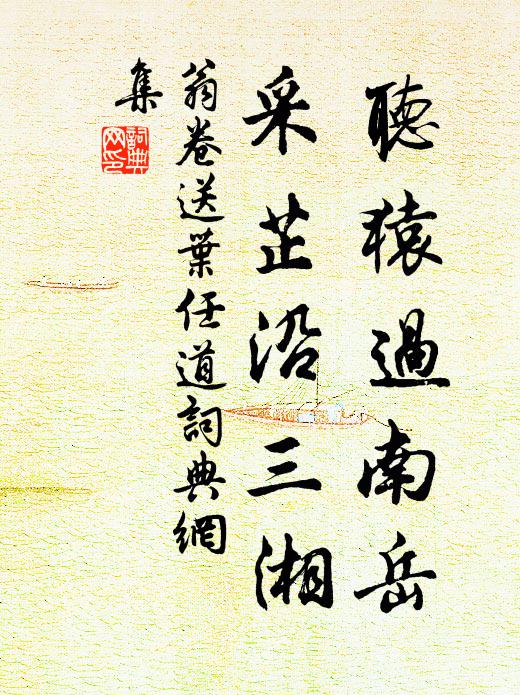 聽猿過南岳
采芷沿三湘
翁卷送葉任道詞典網
集
詞典
网印